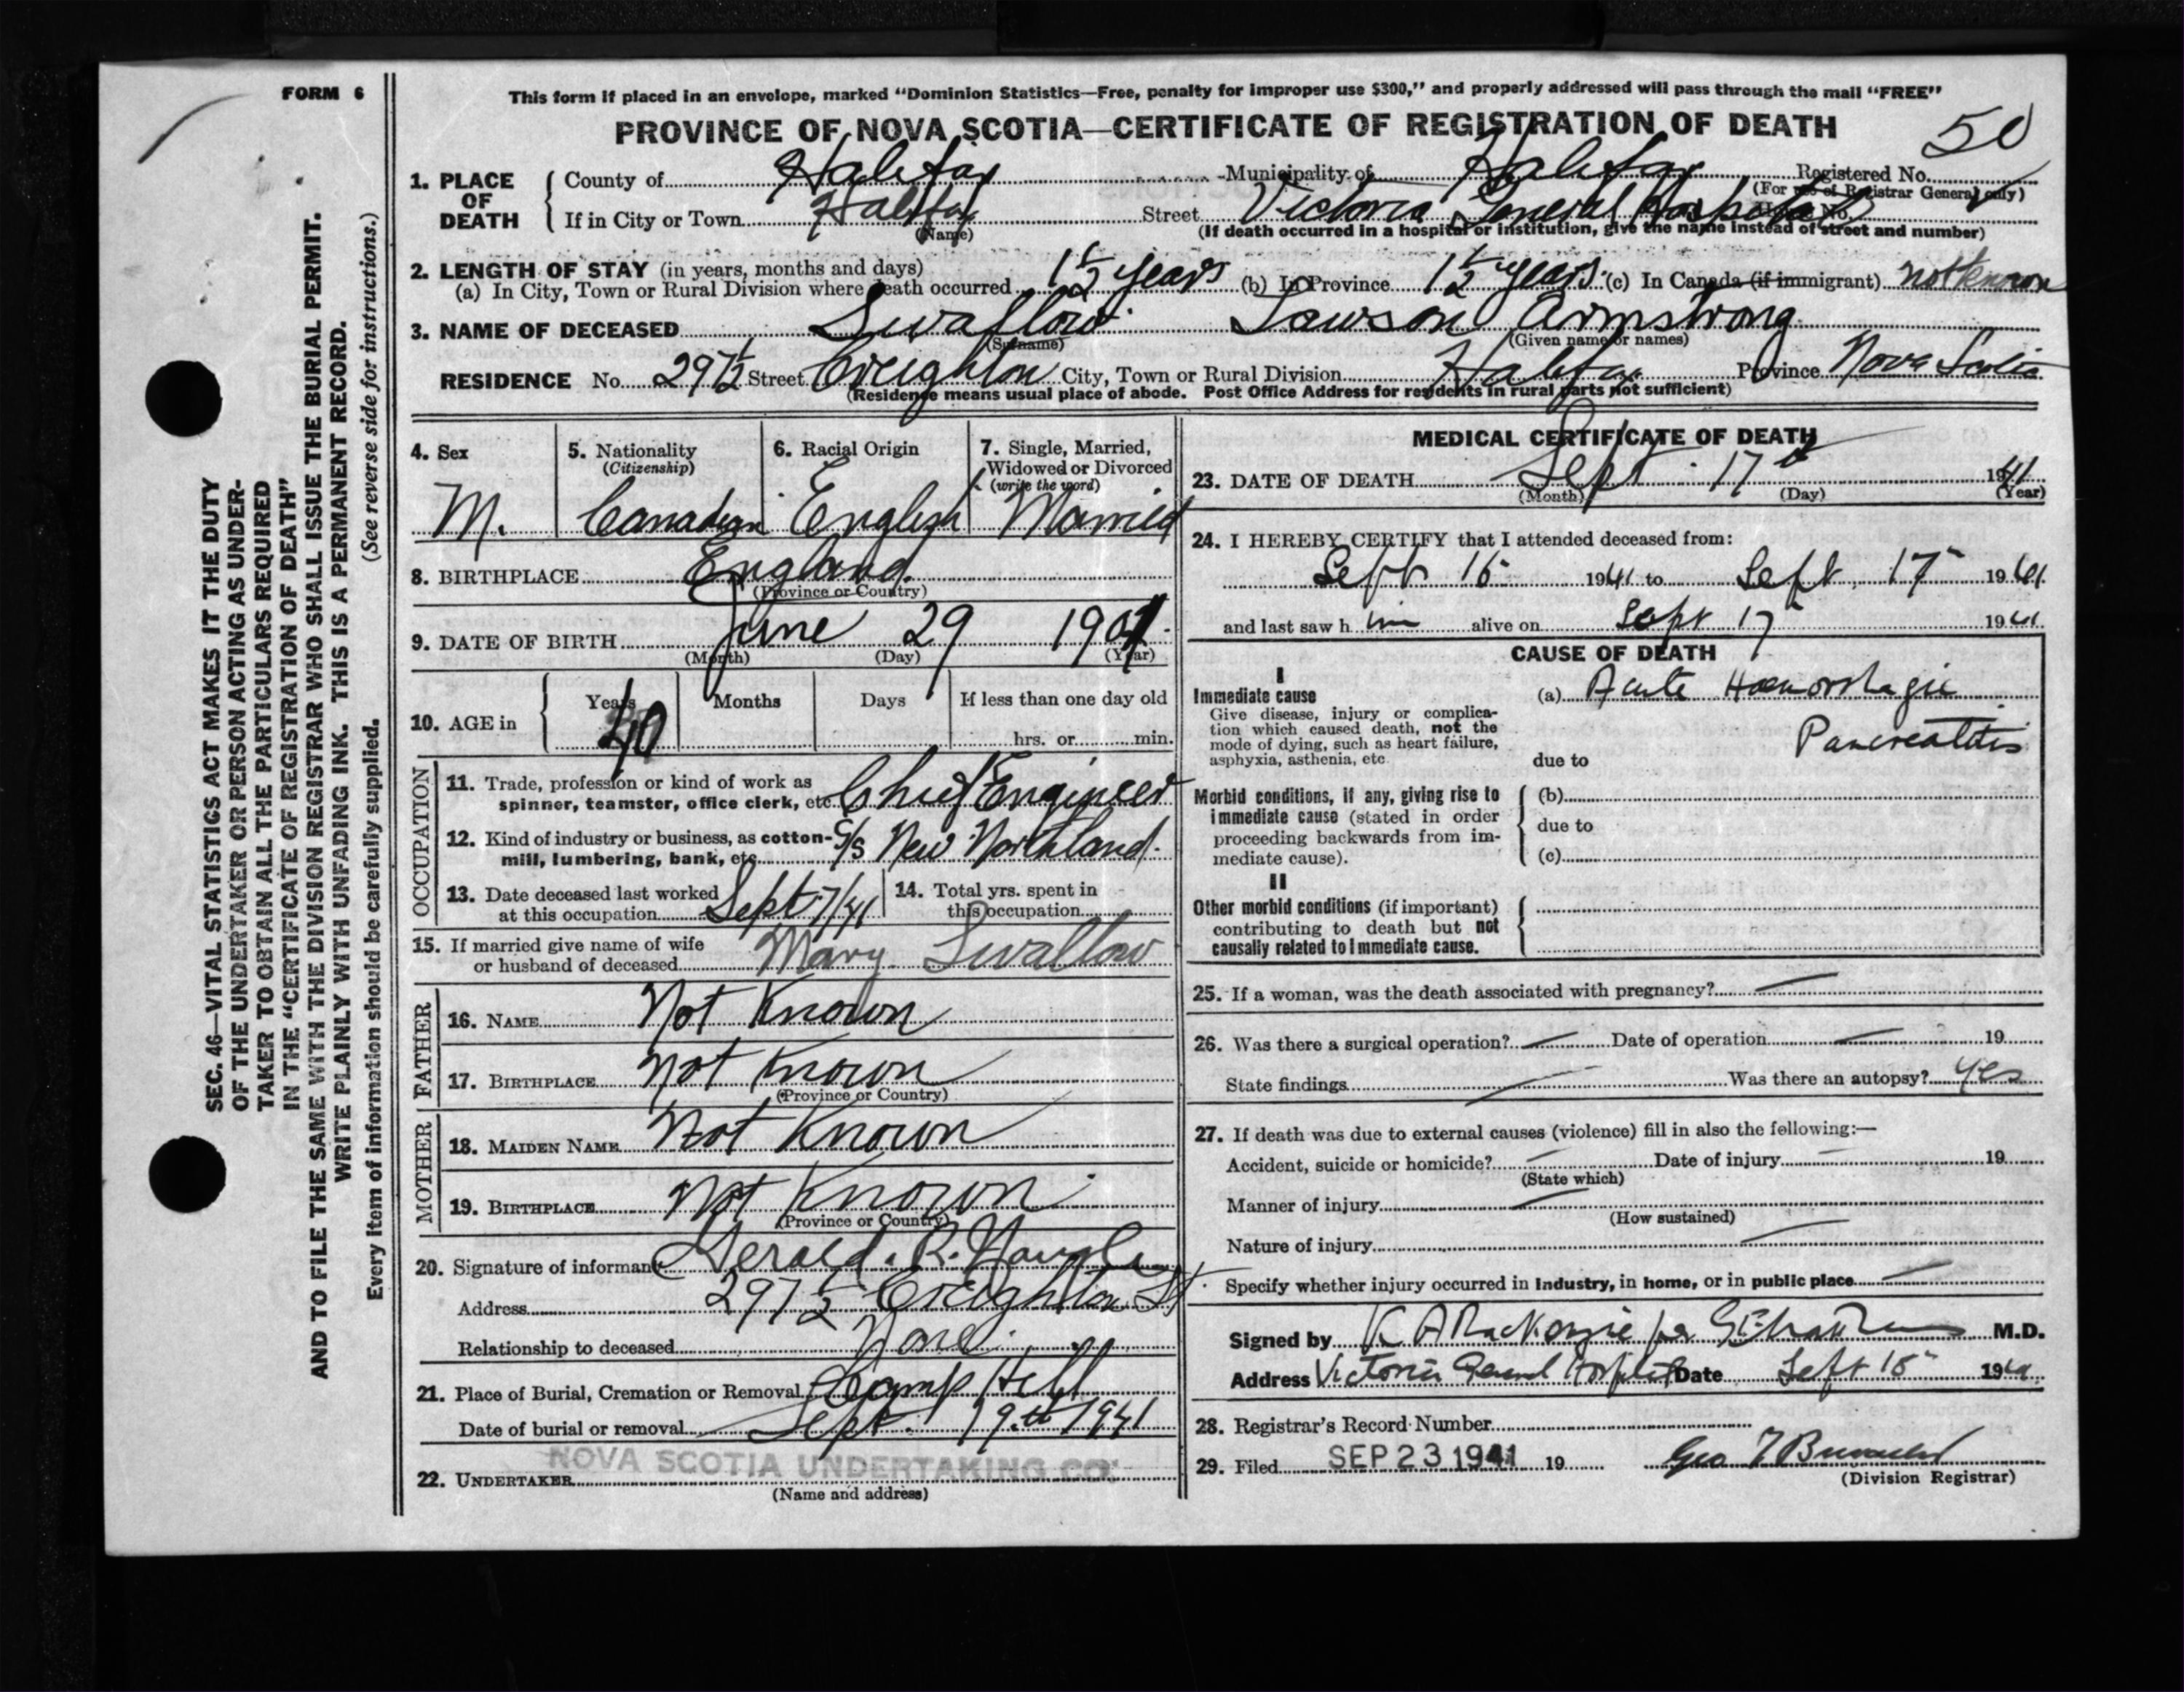 FORM 6
This form if placed in an envelope, marked “Dominion Statistics—Free, penalty for improper use $300,” and properly addressed will pass through the mail “FREE”
PROVINCE OF NOVA SCOTIA—CERTIFICATE OF REGISTRATION OF DEATH
50
1. PLACE OF DEATH
County of Halifax Municipality of Halifax Registered No.
(For use of Registrar General only)
If in City or Town Halifax Street Victoria General Hospital House No.
(Name) (If death occurred in a hospital or institution, give the name instead of street and number)
2. LENGTH OF STAY (in years, months and days)
(a) In City, Town or Rural Division where death occurred 1 1/2 years (b) In Province 1 1/2 years (c) In Canada (if immigrant) not known
3. NAME OF DECEASED Swallow Lawson Armstrong
(Surname) (Given name or names)
RESIDENCE No. 297 1/2 Street Creighton City, Town or Rural Division Halifax Province Nova Scotia
(Residence means usual place of abode. Post Office Address for residents in rural parts not sufficient)
4. Sex
M.
5. Nationality
(Citizenship)
Canadian
6. Racial Origin
English
7. Single, Married,
Widowed or Divorced
(write the word)
Married
8. BIRTHPLACE England.
(Province or Country)
9. DATE OF BIRTH June 29 1901
(Month) (Day) (Year)
10. AGE in
Years Months Days If less than one day old
40 hrs. or min.
OCCUPATION
11. Trade, profession or kind of work as
spinner, teamster, office clerk, etc. Chief Engineer
12. Kind of industry or business, as cotton-
mill, lumbering, bank, etc. S/S New Northland.
13. Date deceased last worked
at this occupation Sept 7/41
14. Total yrs. spent in
this occupation
15. If married give name of wife
or husband of deceased Mary Swallow
FATHER
16. NAME Not Known
17. BIRTHPLACE Not Known
(Province or Country)
MOTHER
18. MAIDEN NAME Not Known
19. BIRTHPLACE Not Known
(Province or Country)
20. Signature of informant Gerald R. Naugle
Address 297 1/2 Creighton St.
Relationship to deceased None
21. Place of Burial, Cremation or Removal Camp Hill
Date of burial or removal Sept. 19th 1941
22. UNDERTAKER NOVA SCOTIA UNDERTAKING CO.
(Name and address)
MEDICAL CERTIFICATE OF DEATH
23. DATE OF DEATH Sept. 17th 1941
(Month) (Day) (Year)
24. I HEREBY CERTIFY that I attended deceased from:
Sept 16 1941 to Sept. 17 1941
and last saw him alive on Sept 17 1941
CAUSE OF DEATH
I
Immediate cause
Give disease, injury or complica-
tion which caused death, not the
mode of dying, such as heart failure,
asphyxia, asthenia, etc.
(a) Acute Haemorrhagic
Pancreatitis
due to
Morbid conditions, if any, giving rise to
immediate cause (stated in order
proceeding backwards from im-
mediate cause).
(b)
due to
(c)
II
Other morbid conditions (if important)
contributing to death but not
causally related to immediate cause.
25. If a woman, was the death associated with pregnancy? —
26. Was there a surgical operation? — Date of operation — 19
State findings — Was there an autopsy? yes
27. If death was due to external causes (violence) fill in also the following:—
Accident, suicide or homicide? — Date of injury — 19
(State which)
Manner of injury —
(How sustained)
Nature of injury —
Specify whether injury occurred in industry, in home, or in public place —
Signed by K A MacKenzie per M.D.
Address Victoria General Hospital Date Sept 18 1941
28. Registrar's Record Number
29. Filed SEP 23 1941 19
(Division Registrar)
SEC. 46—VITAL STATISTICS ACT MAKES IT THE DUTY
OF THE UNDERTAKER OR PERSON ACTING AS UNDER-
TAKER TO OBTAIN ALL THE PARTICULARS REQUIRED
IN THE “CERTIFICATE OF REGISTRATION OF DEATH”
AND TO FILE THE SAME WITH THE DIVISION REGISTRAR WHO SHALL ISSUE THE BURIAL PERMIT.
WRITE PLAINLY WITH UNFADING INK. THIS IS A PERMANENT RECORD.
Every item of information should be carefully supplied. (See reverse side for instructions.)